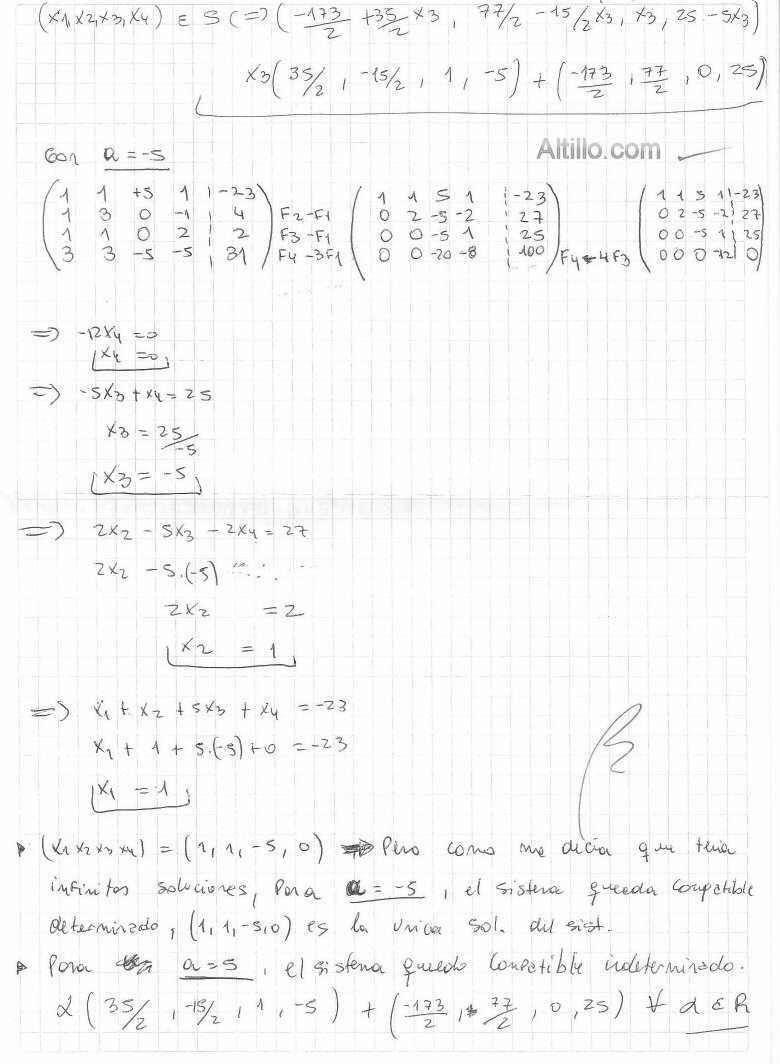 (x1,x2,x3,x4) ∈ S (=> (-173/2 + 35/2 x3, 77/2 - 15/2 x3, x3, 25 - 5x3)
x3 (35/2, -15/2, 1, -5) + (-173/2, 77/2, 0, 25)
Con a = -5
Altillo.com
1 1 +5 1 | -23
1 3 0 -1 | 4 F2-F1
1 1 0 2 | 2 F3-F1
3 3 -5 -5 | 31 F4-3F1
1 1 5 1 | -23
0 2 -5 -2 | 27
0 0 -5 1 | 25
0 0 -20 -8 | 100 F4-4F3
1 1 5 1 | -23
0 2 -5 -2 | 27
0 0 -5 1 | 25
0 0 0 -12 | 0
=> -12x4 = 0
x4 = 0
=> -5x3 + x4 = 25
x3 = 25/-5
x3 = -5
=> 2x2 - 5x3 - 2x4 = 27
2x2 - 5.(-5)
2x2 = 2
x2 = 1
=> x1 + x2 + 5x3 + x4 = -23
x1 + 1 + 5.(-5) + 0 = -23
x1 = 1
(x1 x2 x3 x4) = (1, 1, -5, 0) => Pero como me decia que tenia
infinitas soluciones, Para a = -5, el sistema queeda compatible
determinado, (1, 1, -5, 0) es la unica sol. del sist.
Para a = 5, el sistema quedo compatible indeterminado.
α (35/2, -15/2, 1, -5) + (-173/2, 77/2, 0, 25) ∀ α ∈ R